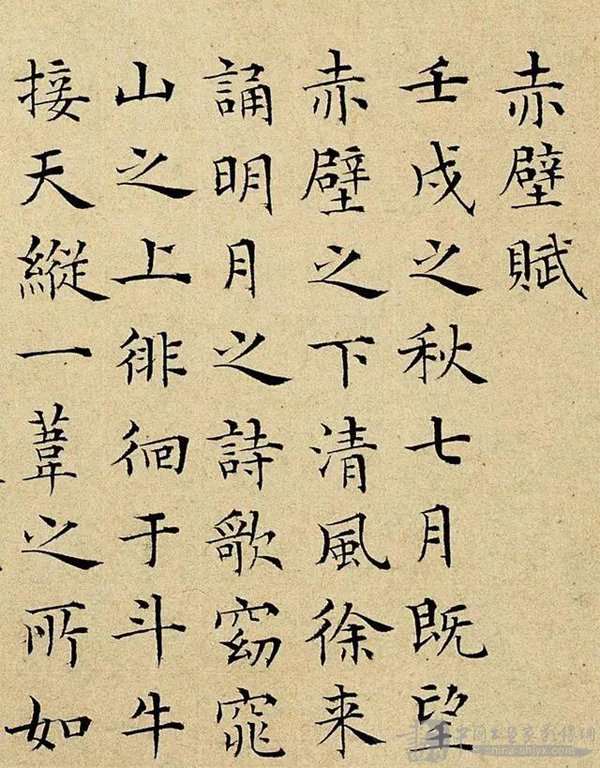 赤壁賦
壬戌之秋七月既望
赤壁之下清風徐來
誦明月之詩歌窈窕
山之上徘徊于斗牛
接天縱一葦之所如
china-shjyx.com